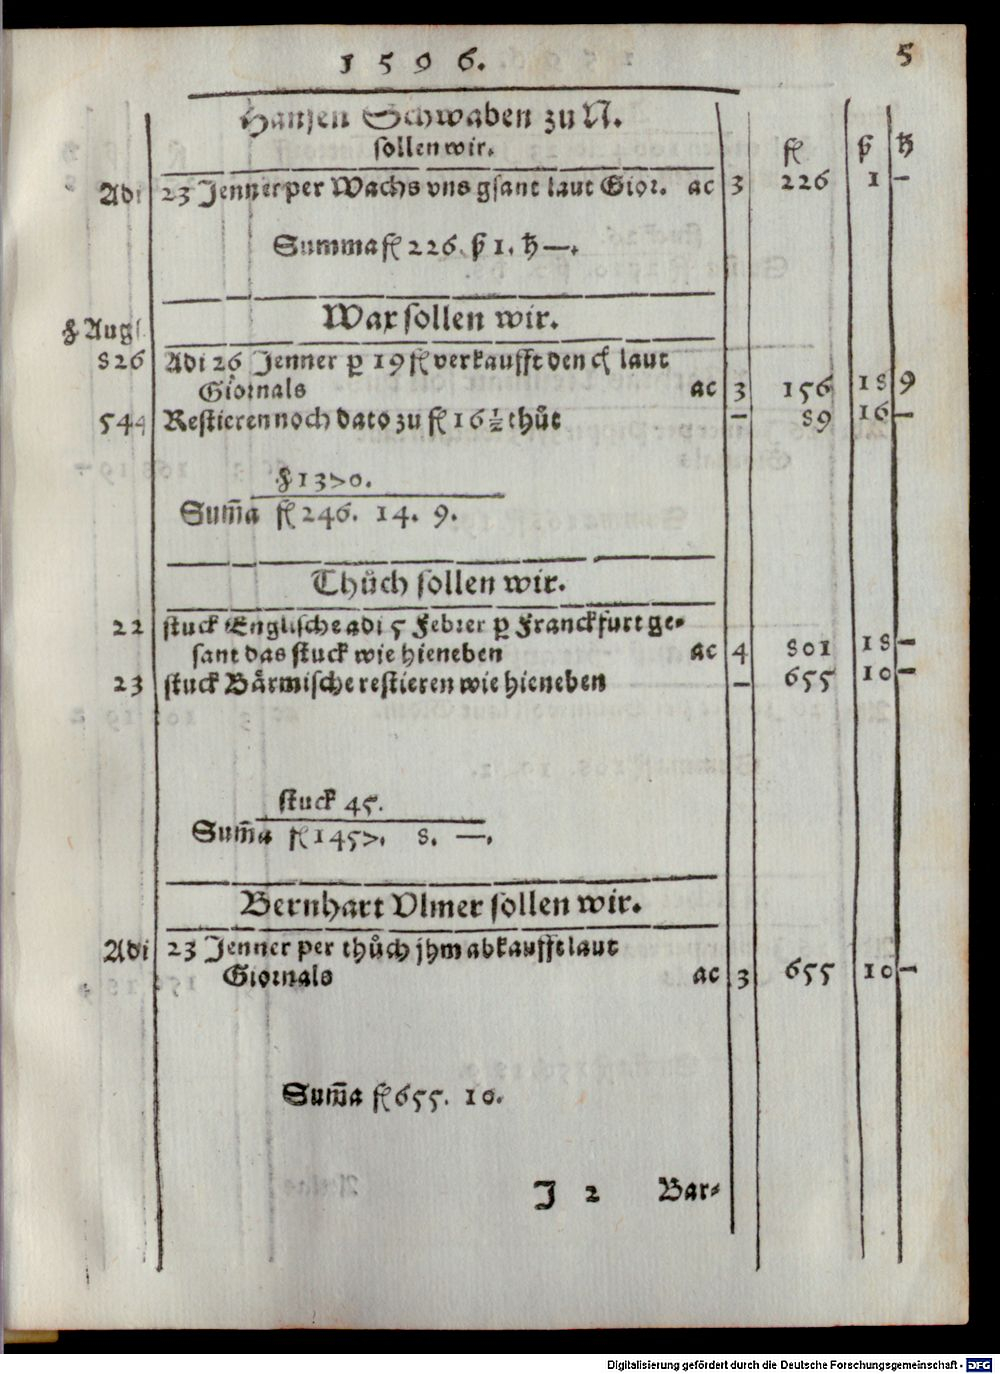 1596. 5
Hansen Schwaben zu N.
sollen wir. fl ß hl
Adi 23 Jenner per Wachs vns gsant laut Gior. ac 3 226 1 —
Summa fl 226. ß 1. hl —.
Wax sollen wir.
℔ Augs.
826 Adi 26 Jenner ꝑ 19 fl verkaufft den cl laut
Giornals ac 3 156 18 9
544 Restieren noch dato zu fl 16 ½ thůt — 89 16 —
℔ 1370.
Sum̃a fl 246. 14. 9.
Thůch sollen wir.
22 stuck Englische adi 5 Febrer ꝑ Franckfurt ge-
sant das stuck wie hieneben ac 4 801 18 —
23 stuck Bärmische restieren wie hieneben — 655 10 —
stuck 45.
Sum̃a fl 1457. 8. —.
Bernhart Vlmer sollen wir.
Adi 23 Jenner per thůch jhm abkaufft laut
Giornals ac 3 655 10 —
Sum̃a fl 655. 10.
J 2 Bar-
Digitalisierung gefördert durch die Deutsche Forschungsgemeinschaft - DFG